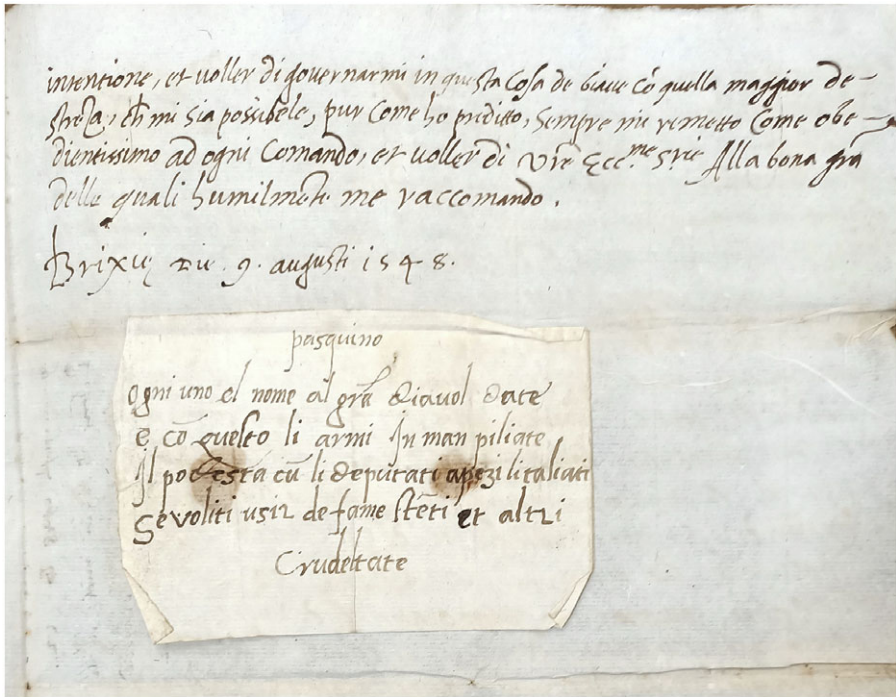 intentione, et voller di governarmi in questa cosa de biave cõ quella maggior de-
streza, ch̃ mi sia possibele, pur come ho preditto, sempre mi rimetto come obe-
dientissimo ad ogni comando, et voller di Vrẽ Ecc.me Srie Alla bona gra
delle quali humilmẽte me raccomando.
Brixię Die. 9. augusti 1548.
pasquino
Ogni uno el nome al grã diavol date
e cõ questo li armi In man piliate
Il podesta cũ li deputati a pezi li taliati
Se voliti usir de fame stẽti et altri
Crudeltate